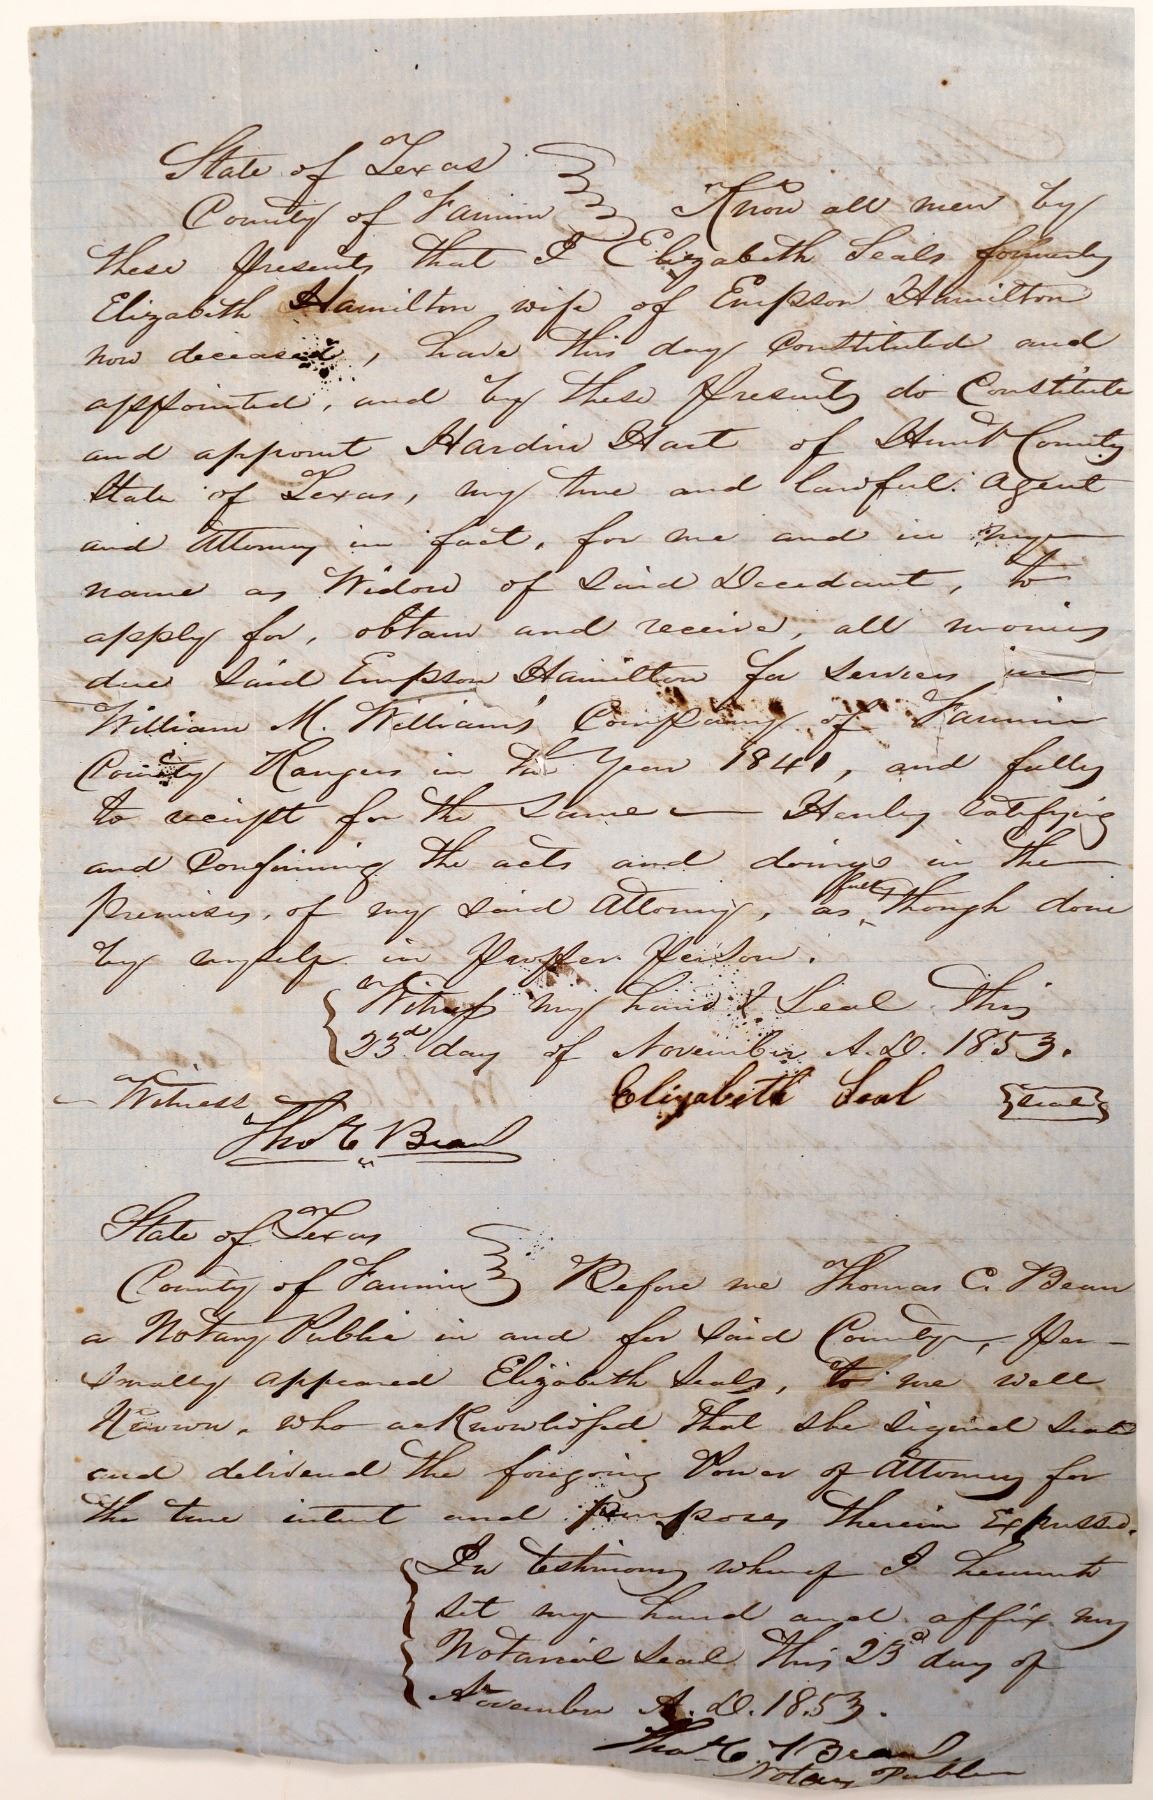 State of Texas
County of Fannin } Know all men by
these presents that I Elizabeth Seals formerly
Elizabeth Hamilton wife of Empson Hamilton
now deceased, have this day constituted and
appointed, and by these presents do Constitute
and appoint Hardin Hart of Hunt County
State of Texas, my true and lawful Agent
and Attorney in fact, for me and in my
name as Widow of Said Decedant, to
apply for, obtain and receive, all monies
due Said Empson Hamilton for services in
William M. William's Company of Fannin
County Rangers in the Year 1841, and fully
to receipt for the same — Hereby ratifying
and Confirming the acts and doings in the
premises, of my said Attorney, as fully though done
by myself in proper person.
Witness my hand & Seal this
23d day of November A.D. 1853.
Elizabeth Seal {Seal}
Witness
Thos C. Bean
State of Texas
County of Fannin } Before me Thomas C. Bean
a Notary Public in and for Said County, per-
sonally appeared Elizabeth Seals, to me well
Known, who acknowledged that she signed seald
and delivered the foregoing Power of Attorney for
the true intent and purposes therein Expressed.
In testimony whereof I hereunto
set my hand and affix my
Notarial Seal this 23d day of
November A.D. 1853.
Thos C. Bean
Notary Public